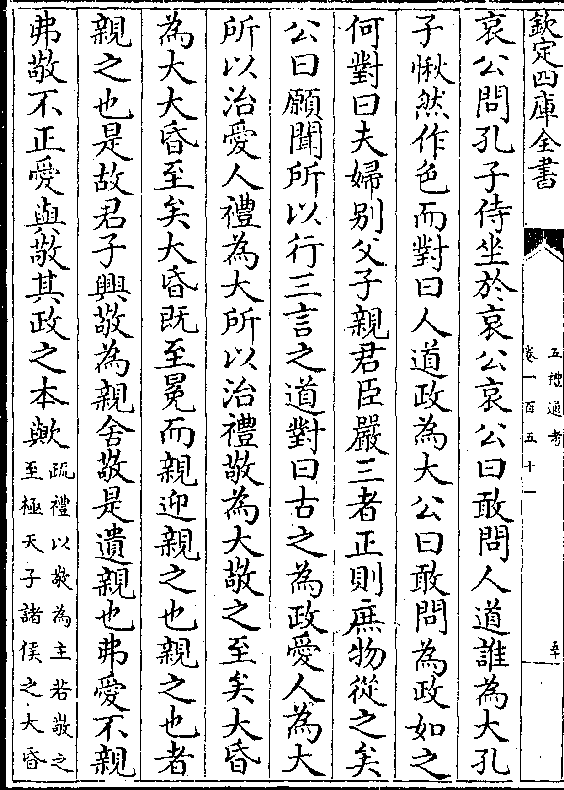 欽定四庫全書
五禮通考
卷一百五十一
哀公問孔子侍坐於哀公哀公曰敢問人道誰為大孔
子愀然作色而對曰人道政為大公曰敢問為政如之
何對曰夫婦別父子親君臣嚴三者正則庶物從之矣
公曰願聞所以行三言之道對曰古之為政愛人為大
所以治愛人禮為大所以治禮敬為大敬之至矣大昏
為大大昏至矣大昏既至冕而親迎親之也親之也者
親之也是故君子興敬為親舍敬是遺親也弗愛不親
弗敬不正愛與敬其政之本歟
疏禮以敬為主若敬之
至極天子諸侯之大昏